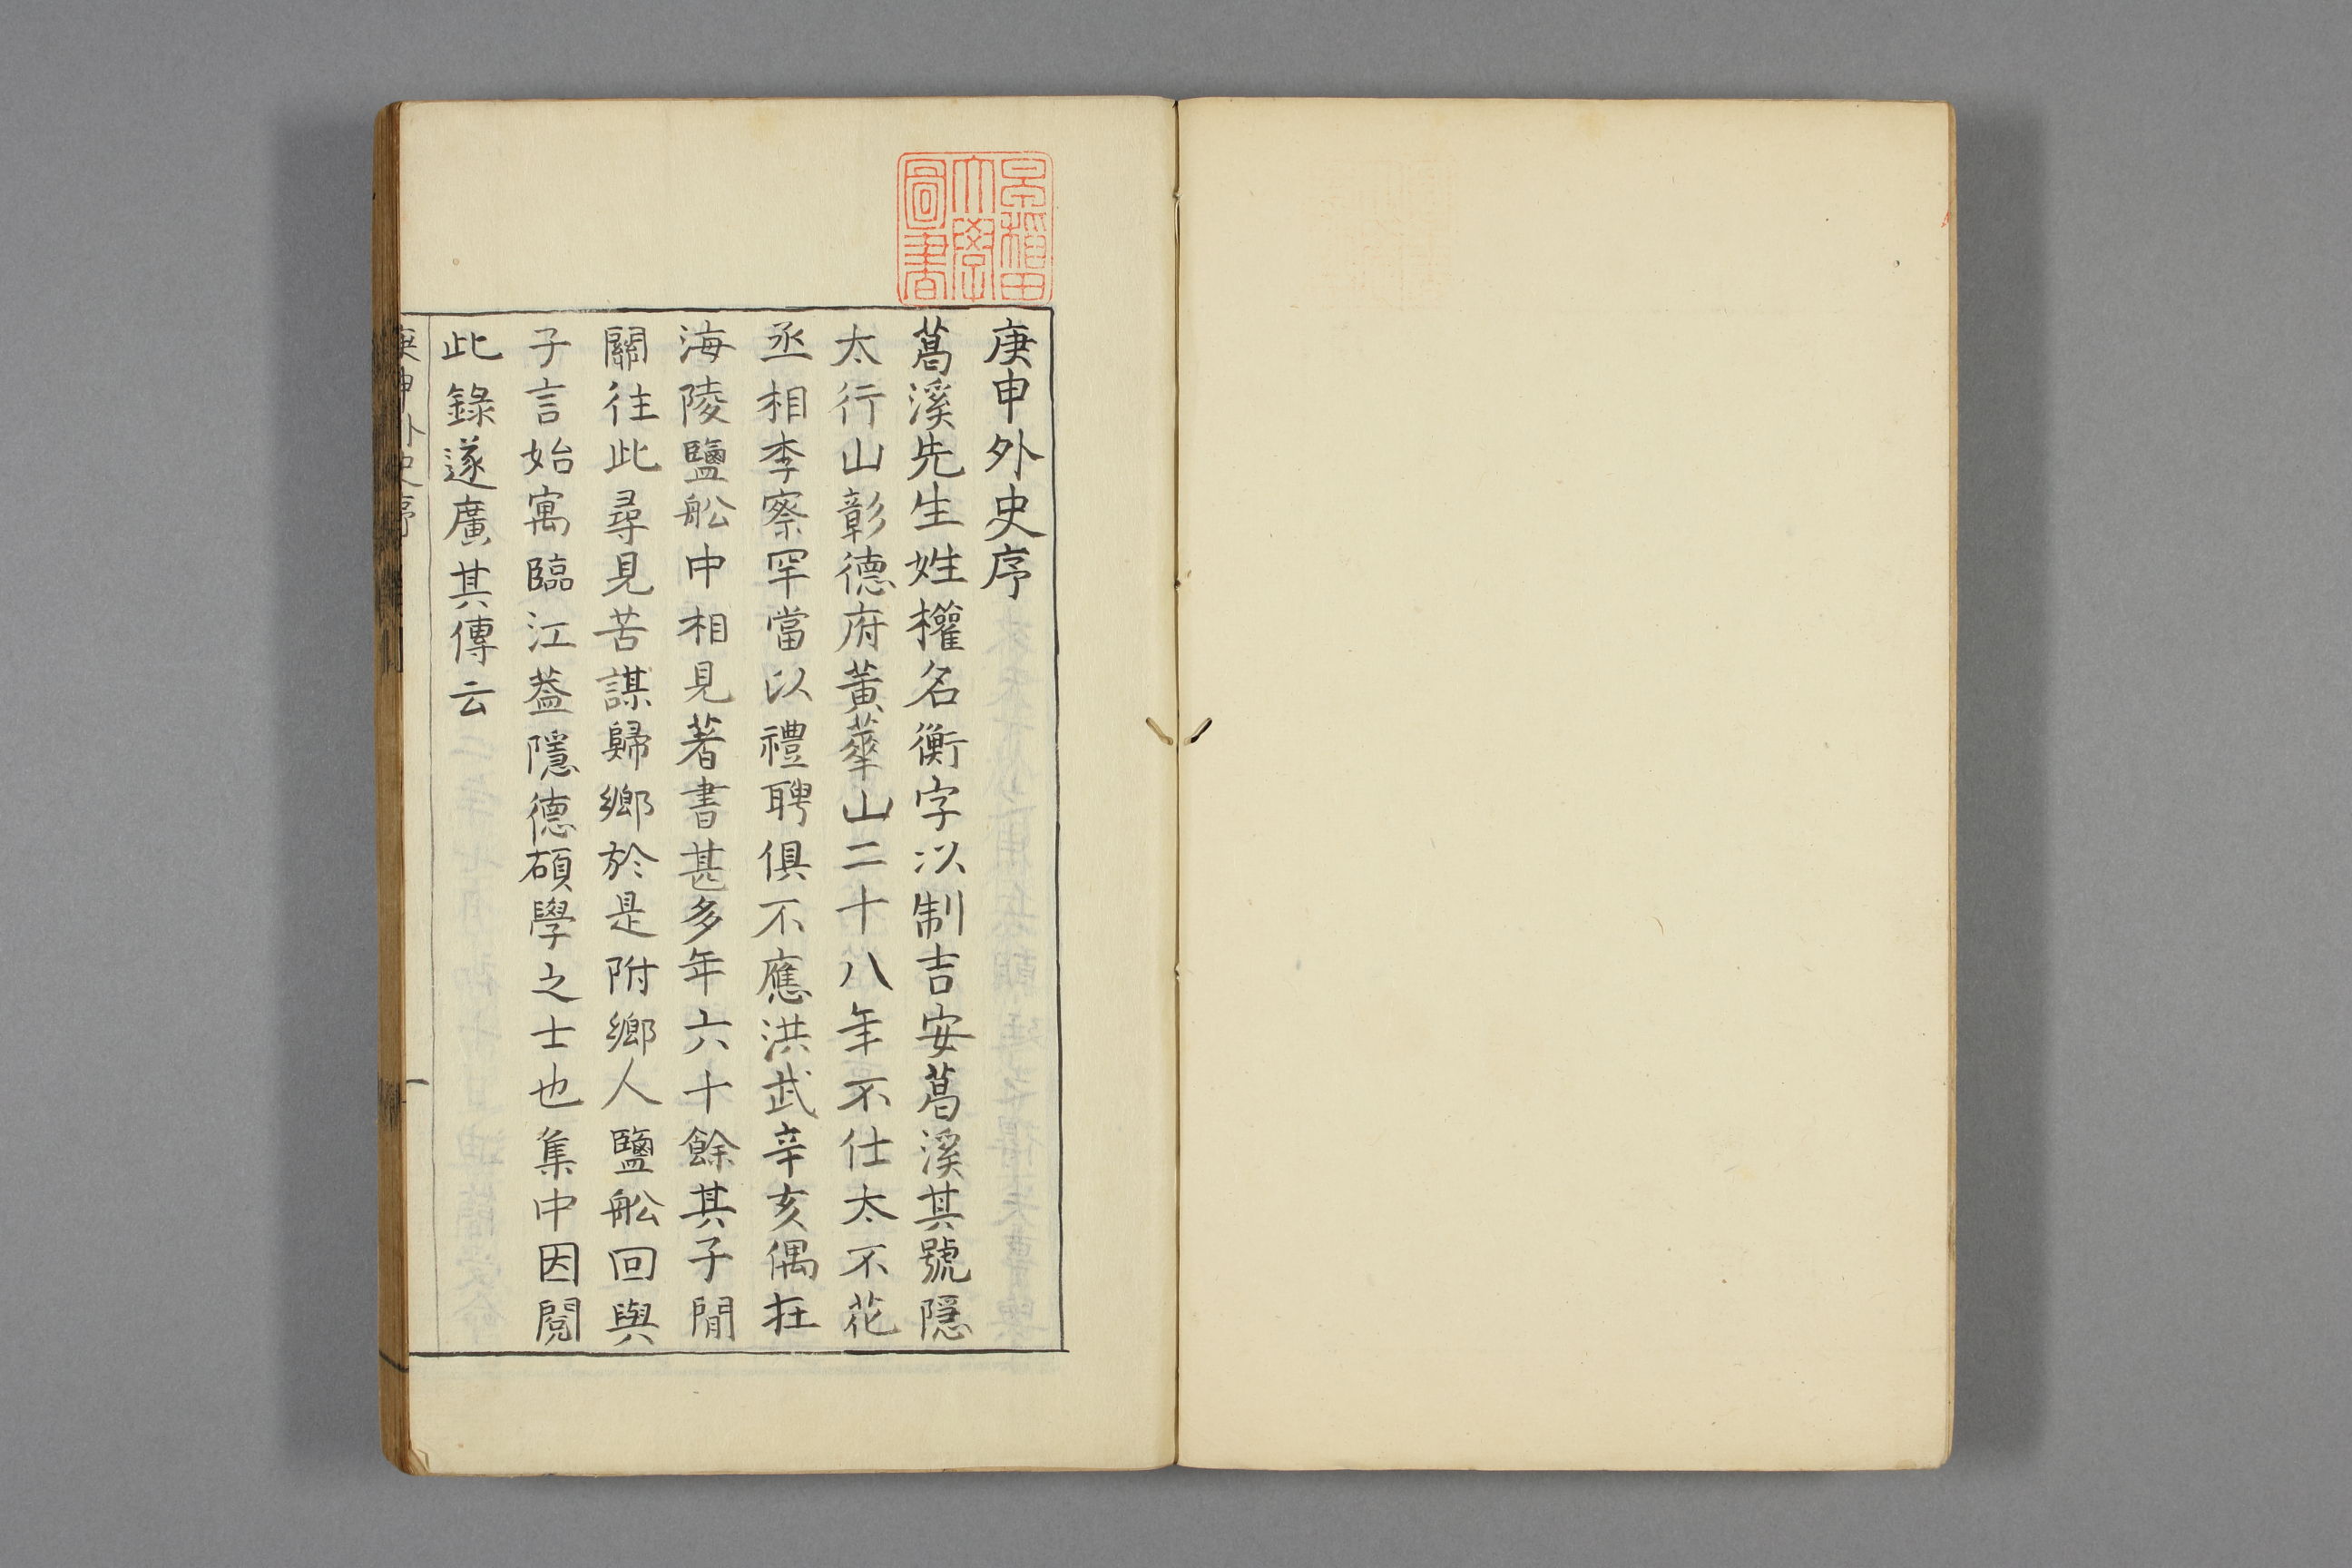 庚申外史序
葛溪先生姓權名衡字以制吉安葛溪其號隱
太行山彰德府黃華山二十八年不仕太不花
丞相李察罕當以禮聘俱不應洪武辛亥偶在
海陵鹽舩中相見著書甚多年六十餘其子閒
關往此尋見苦謀歸鄉於是附鄉人鹽舩回與
子言始寓臨江葢隱德碩學之士也集中因閱
此錄遂廣其傳云
庚申外史序
一
早稻田
大學
圖書